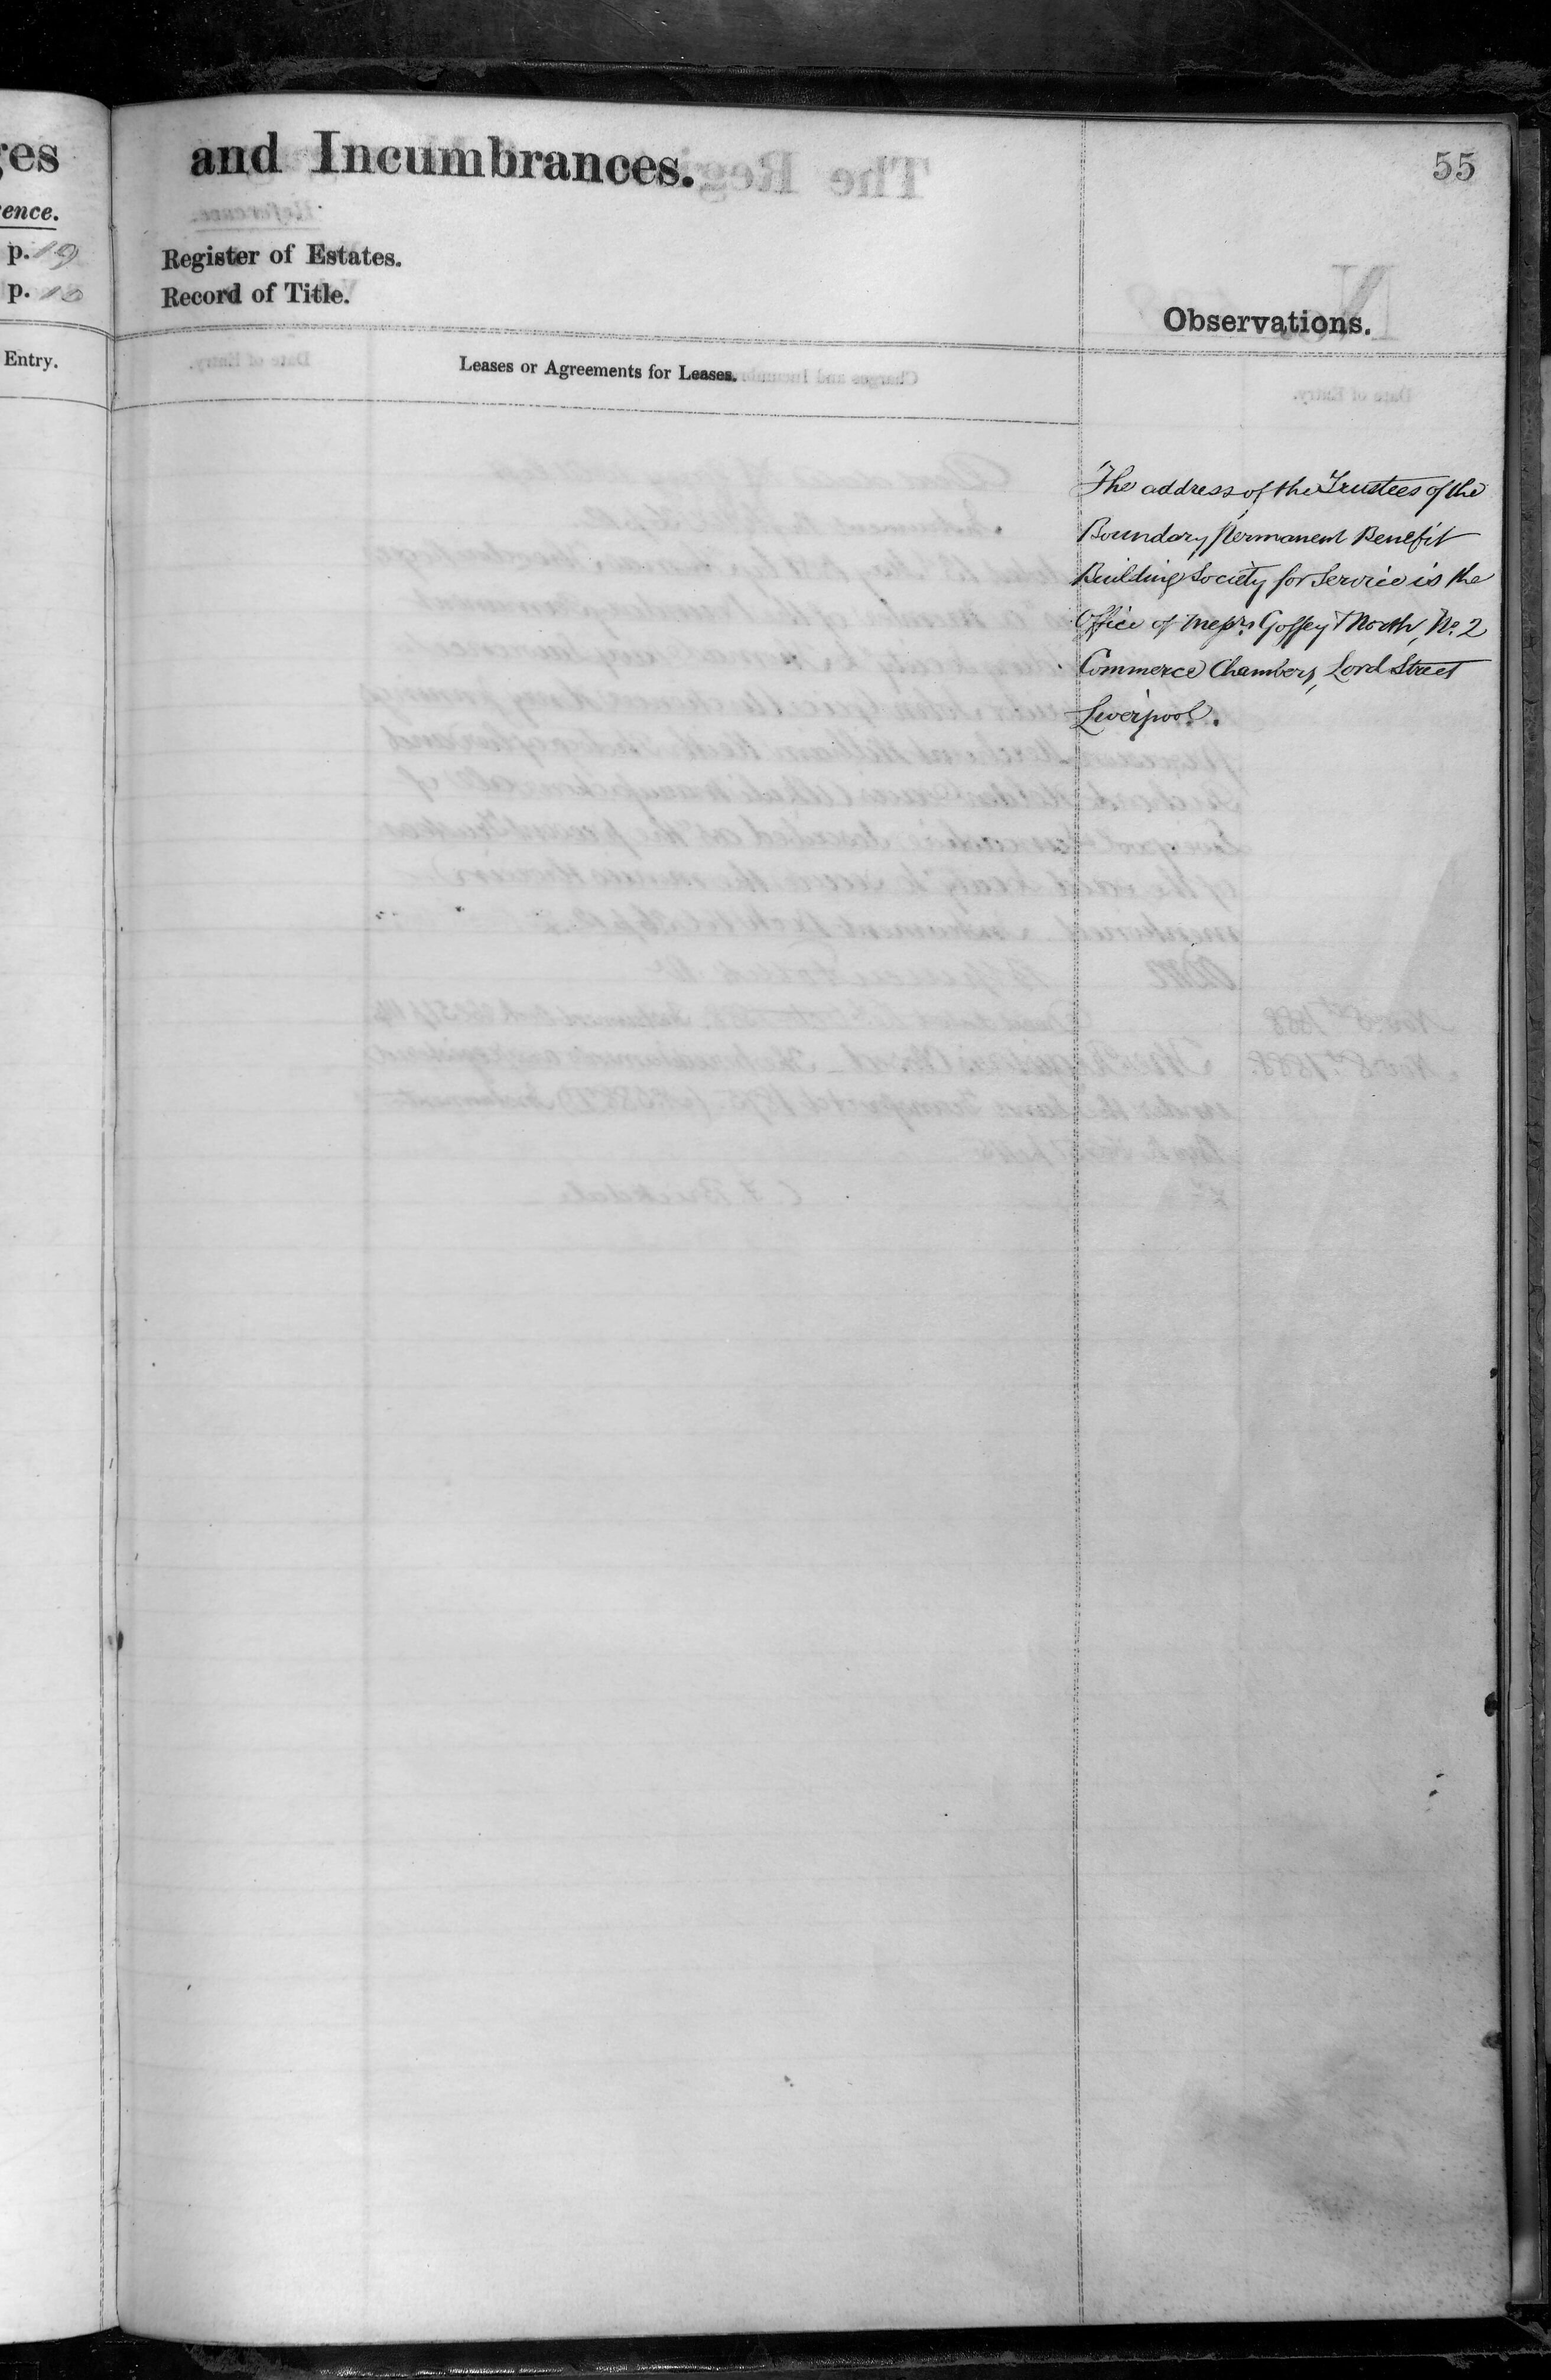 ges
and Incumbrances.
55
ence.
p. 19
Register of Estates.
p. 10
Record of Title.
Observations.
Entry.
Leases or Agreements for Leases.
The address of the Trustees of the
Boundary Permanent Benefit
Building Society for Service is the
Office of Messrs. Goffey & North, No. 2
Commerce Chambers, Lord Street
Liverpool.